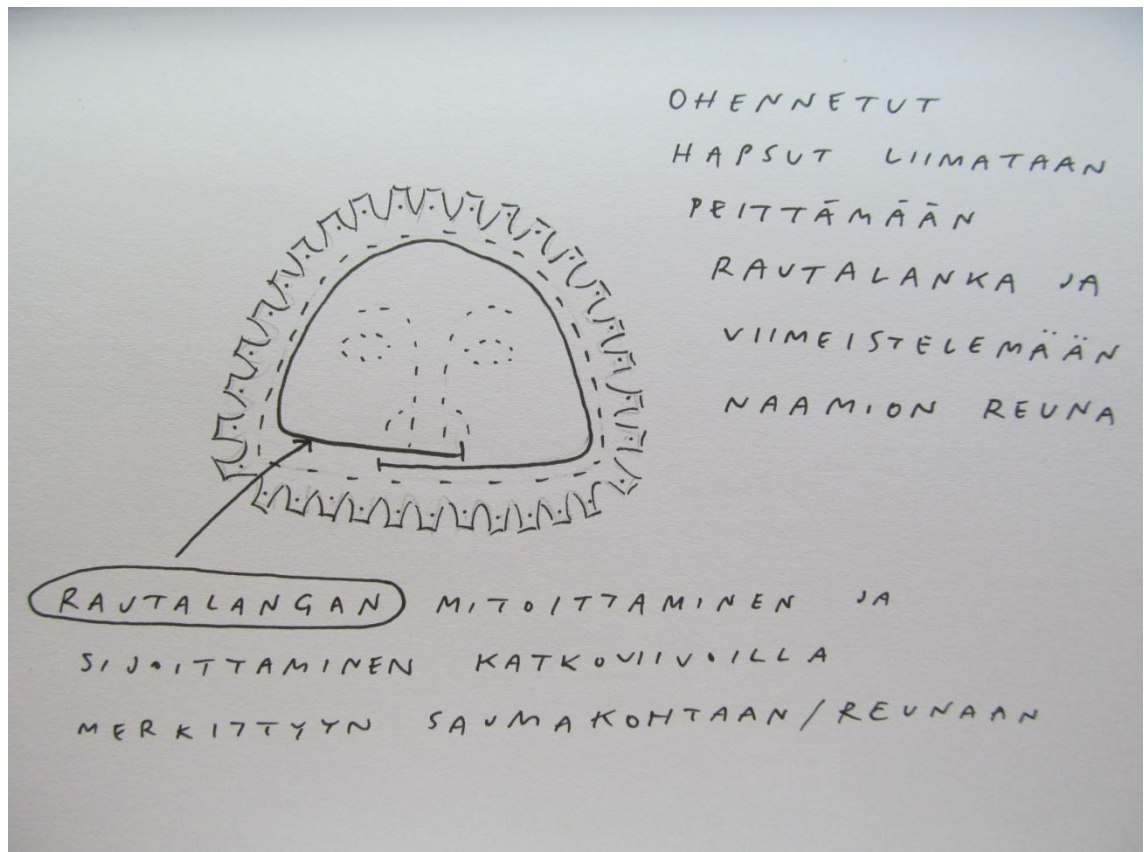 OHENNETUT
HAPSUT LIIMATAAN
PEITTÄMÄÄN
RAUTALANKA JA
VIIMEISTELEMÄÄN
NAAMION REUNA
RAUTALANGAN MITOITTAMINEN JA
SIJOITTAMINEN KATKOVIIVOILLA
MERKITTYYN SAUMAKOHTAAN/REUNAAN